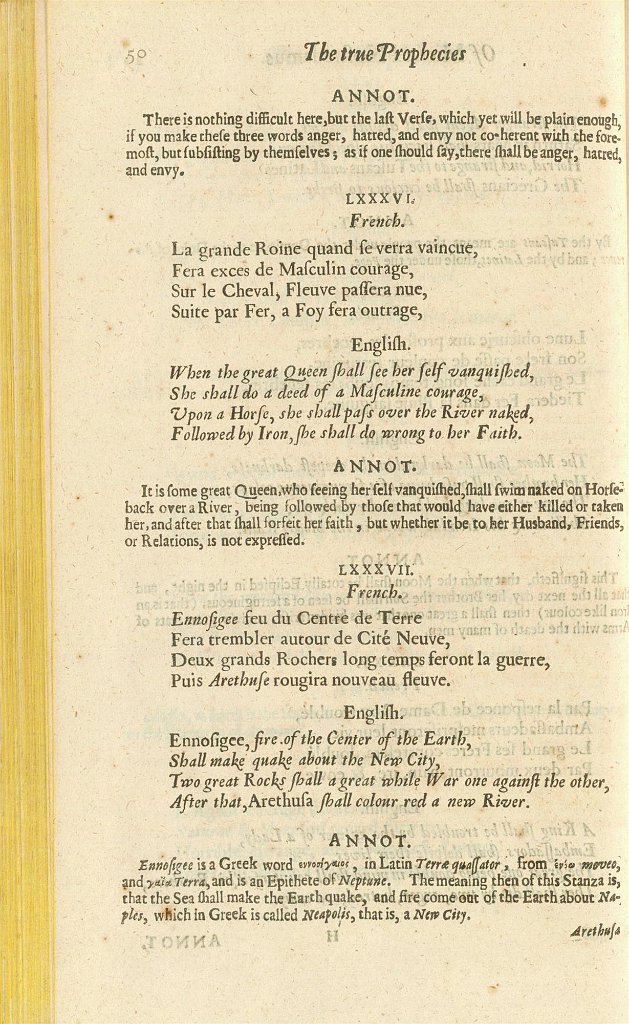 50 The true Prophecies
ANNOT.
There is nothing difficult here, but the laſt Verſe, which yet will be plain enough,
if you make theſe three words anger, hatred, and envy not co-herent with the fore-
moſt, but ſubſiſting by themſelves; as if one ſhould ſay, there ſhall be anger, hatred,
and envy.
LXXXVI.
French.
La grande Roine quand ſe verra vaincue,
Fera exces de Maſculin courage,
Sur le Cheval, Fleuve paſſera nue,
Suite par Fer, a Foy fera outrage,
Engliſh.
When the great Queen ſhall ſee her ſelf vanquiſhed,
She ſhall do a deed of a Maſculine courage,
Upon a Horſe, she ſhall paſs over the River naked,
Followed by Iron, ſhe ſhall do wrong to her Faith.
ANNOT.
It is ſome great Queen, who ſeeing her ſelf vanquiſhed, ſhall ſwim naked on Horſe-
back over a River, being followed by thoſe that would have either killed or taken
her, and after that ſhall forfeit her faith, but whether it be to her Husband, Friends,
or Relations, is not expreſſed.
LXXXVII.
French.
Ennoſigee feu du Centre de Terre
Fera trembler autour de Cité Neuve,
Deux grands Rochers long temps feront la guerre,
Puis Arethuſe rougira nouveau fleuve.
Engliſh.
Ennoſigee, fire of the Center of the Earth,
Shall make quake about the New City,
Two great Rocks ſhall a great while War one againſt the other,
After that, Arethuſa ſhall colour red a new River.
ANNOT.
Ennoſigee is a Greek word , in Latin Terræ quaſſator, from moveo,
and Terra, and is an Epithete of Neptune. The meaning then of this Stanza is,
that the Sea ſhall make the Earth quake, and fire come out of the Earth about Na-
ples, which in Greek is called Neapolis, that is, a New City.
Arethuſa